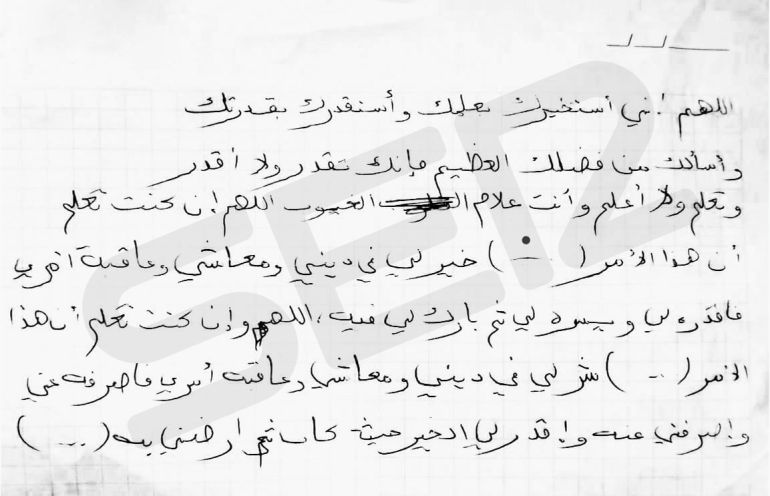 اللهم إني أستخيرك بعلمك وأستقدرك بقدرتك
وأسألك من فضلك العظيم فإنك تقدر ولا أقدر
وتعلم ولا أعلم وأنت علام الغيوب اللهم إن كنت تعلم
أن هذا الأمر (...) خير لي في ديني ومعاشي وعاقبة أمري
فاقدره لي ويسره لي ثم بارك لي فيه، اللهم وإن كنت تعلم أن هذا
الأمر (...) شر لي في ديني ومعاشي وعاقبة أمري فاصرفه عني
واصرفني عنه واقدر لي الخير حيث كان ثم ارضني به (...)
SEIZ